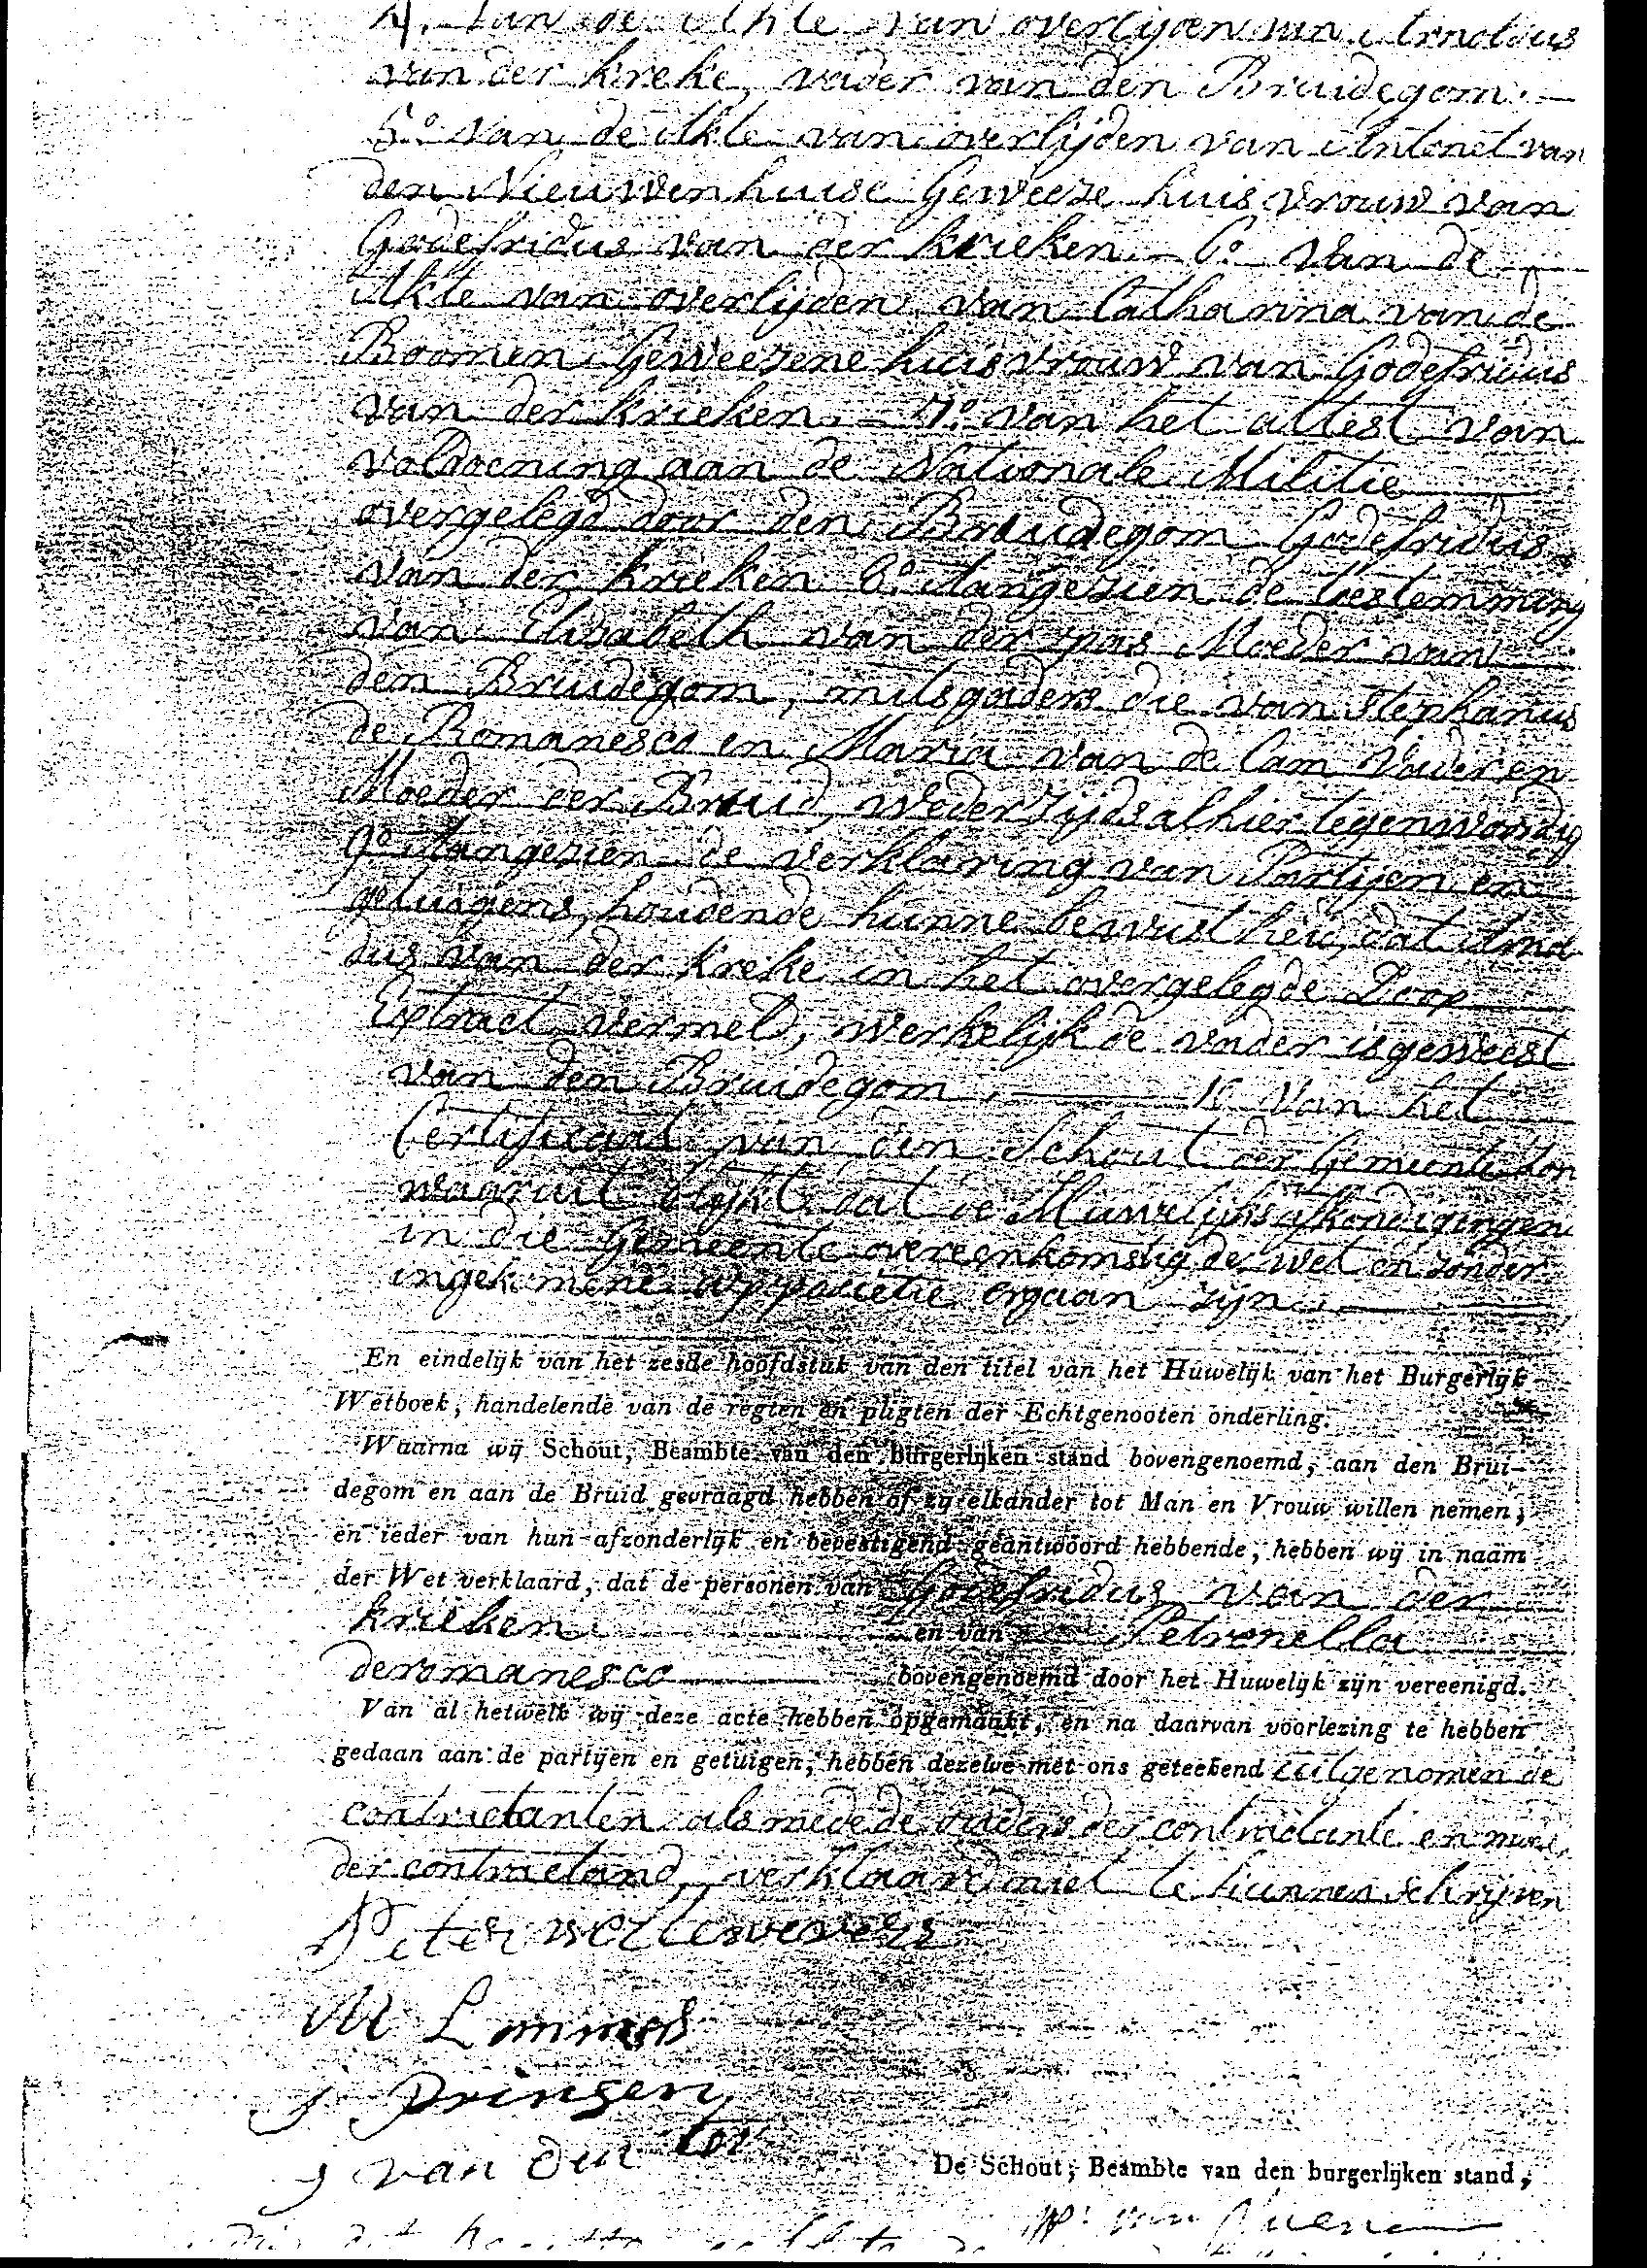 4. Van de Akte van overlijden van Arnoldus
van der Kreke, vader van den Bruidegom. —
5.o Van de Akte van overlijden van Antonet van
den Nieuwenhuise Geweeze huisvrouw van
Godefridus van der krieken. — 6.o Van de
Akte van overlijden van Catharina van de
Boomen Geweezene huisvrouw van Godefridus
van der krieken. — 7.o van het attest van
voldoening aan de Nationale Militie
overgelegd door den Bruidegom Godefridus
van der krieken 8.o Aangezien de toestemming
van Elisabeth van der pas Moeder van
den Bruidegom, mitsgaders die van Stephanus
de Romanesco en Maria van de Cam Vader en
Moeder der Bruid, wederzijds alhier tegenwoordig
9.o Aangezien de verklaring van Partijen en
getuigens, houdende hunne bewustheid, dat Arnol
dus van der Kreke in het overgelegde Doop
Extract vermeld, werkelijk de vader is geweest
van den Bruidegom. — Van het
Certificaat van den Schout der Gemeente
waaruit blijkt dat de Huwelijks afkondigingen
in die Gemeente overeenkomstig de wet en zonder
ingekomene oppositie ergaan zijn. —
En eindelijk van het zesde hoofdstuk van den titel van het Huwelijk van het Burgerlijk
Wetboek, handelende van de regten en pligten der Echtgenooten onderling.
Waarna wij Schout, Beambte van den burgerlijken stand bovengenoemd, aan den Brui-
degom en aan de Bruid gevraagd hebben of zij elkander tot Man en Vrouw willen nemen;
en ieder van hun afzonderlijk en bevestigend geantwoord hebbende, hebben wij in naam
der Wet verklaard, dat de personen van Godefridus van der
krieken en van Petronella
deromanesco bovengenoemd door het Huwelijk zijn vereenigd.
Van al hetwelk wij deze acte hebben opgemaakt, en na daarvan voorlezing te hebben
gedaan aan de partijen en getuigen, hebben dezelve met ons geteekend uitgenomen de
contractanten als mede de ouders der contractante en moed.
der contractand, verklaard niet te kunnen schrijven
Peter
M Lammers
J Prinsen
J van den
De Schout, Beambte van den burgerlijken stand,
van